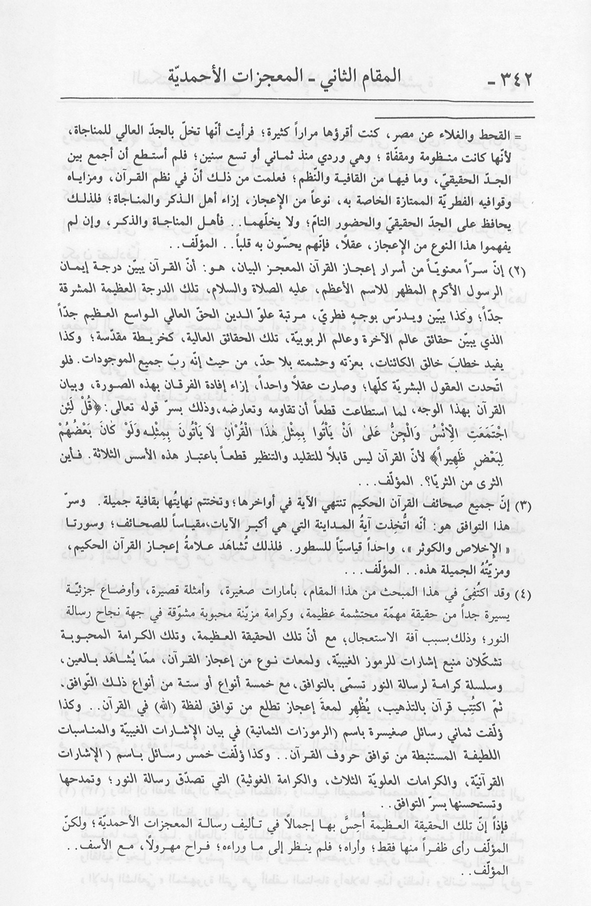 ٣٤٢ - المقام الثاني - المعجزات الأحمديّة
= القحط والغلاء عن مصر، كنت أقرؤها مراراً كثيرة؛ فرأيت أنّها تخلّ بالجدّ العالي للمناجاة،
لأنّها كانت منظومة ومقفّاة؛ وهي وردي منذ ثماني أو تسع سنين؛ فلم أستطع أن أجمع بين
الجدّ الحقيقيّ، وما فيها من القافية والنّظم؛ فعلمت من ذلك أنّ في نظم القرآن، ومزاياه
وقوافيه الفطريّة الممتازة الخاصة به، نوعاً من الإعجاز، إزاء أهل الذكر والمناجاة؛ فلذلك
يحافظ على الجدّ الحقيقيّ والحضور التامّ؛ ولا يخلّهما.. فأهل المناجاة والذكر، وإن لم
يفهموا هذا النوع من الإعجاز، عقلاً، فإنّهم يحسّون به قلباً.. المؤلف..
(٢) إنّ سرّاً معنويّاً من أسرار إعجاز القرآن المعجز البيان، هو: أنّ القرآن يبيّن درجة إيمان
الرسول الأكرم المظهر للاسم الأعظم، عليه الصلاة والسلام، تلك الدرجة العظيمة المشرقة
جدّاً؛ وكذا يبيّن ويدرّس بوجهٍ فطريّ، مرتبة علوّ الدين الحق العالي الواسع العظيم جدّاً
الذي يبيّن حقائق عالم الآخرة وعالم الربوبيّة، تلك الحقائق العالية، كخريطة مقدّسة؛ وكذا
يفيد خطابَ خالق الكائنات، بعزّته وحشمته بلا حدّ، من حيث إنّه ربّ جميع الموجودات. فلو
اتّحدت العقول البشريّة كلّها؛ وصارت عقلاً واحداً، إزاء إفادة الفرقان بهذه الصورة، وبيان
القرآن بهذا الوجه، لما استطاعت قطعاً أن تقاومه وتعارضه، وذلك بسرّ قوله تعالى: ﴿قُلْ لَئِن
اجْتَمَعَتِ الإِنْسُ وَالْجِنُّ عَلَىٰ اَنْ يَأْتُوا بِمِثْلِ هَذَا الْقُرْاٰنِ لَا يَأْتُونَ بِمِثْلِهِ وَلَوْ كَانَ بَعْضُهُمْ
لِبَعْضٍ ظَهِيراً﴾ لأنّ القرآن ليس قابلاً للتقليد والتنظير قطعاً باعتبار هذه الأسس الثلاثة. فأين
الثرى من الثريّا؟. المؤلف...
(٣) إنّ جميع صحائف القرآن الحكيم تنتهي الآية في أواخرها؛ وتختتم نهايتُها بقافية جميلة. وسرّ
هذا التوافق هو: أنّه اتُّخِذت آيةُ المداينة التي هي أكبر الآيات، مقياساً للصحائف؛ وسورتا
« الإخلاص والكوثر »، واحداً قياسيّاً للسطور. فلذلك تُشاهَد علامةُ إعجاز القرآن الحكيم،
ومزيّتُهُ الجميلة هذه.. المؤلف...
(٤) وقد اكتُفِيَ في هذا المبحث من هذا المقام، بأمارات صغيرة، وأمثلة قصيرة، وأوضاع جزئيّة
يسيرة جداً من حقيقة مهمّة محتشمة عظيمة، وكرامة مزيّنة محبوبة مشوّقة في جهة نجاح رسالة
النور؛ وذلك بسبب آفة الاستعجال؛ مع أنّ تلك الحقيقة العظيمة، وتلك الكرامة المحبوبة
تشكّلان منبع إشارات للرموز الغيبيّة، ولمعات نوع من إعجاز القرآن، ممّا يُشاهَد بالعين،
وسلسلة كرامة لرسالة النور تسمّى بالتوافق، مع خمسة أنواع أو ستة من أنواع ذلك التوافق.
ثمّ اكتُتِب قرآن بالتذهيب، يُظهِر لمعةَ إعجاز تطلع من توافق لفظة (الله) في القرآن.. وكذا
ولّفت ثماني رسائل صغيرة باسم (الرموزات الثمانية) في بيان الإشارات الغيبيّة والمناسبات
اللطيفة المستنبطة من توافق حروف القرآن.. وكذا وُلّفت خمس رسائل باسم (الإشارات
القرآنيّة، والكرامات العلويّة الثلاث، والكرامة الغوثية) التي تصدّق رسالة النور؛ وتمدحها
وتستحسنها بسرّ التوافق..
فإذاً إنّ تلك الحقيقة العظيمة أُحِسَّ بها إجمالاً في تأليف رسالة المعجزات الأحمديّة؛ ولكنّ
المؤلف رأى ظفراً منها فقط؛ وأراه؛ فلم ينظر إلى ما وراءه؛ فراح مهرولاً، مع الأسف..
المؤلف..